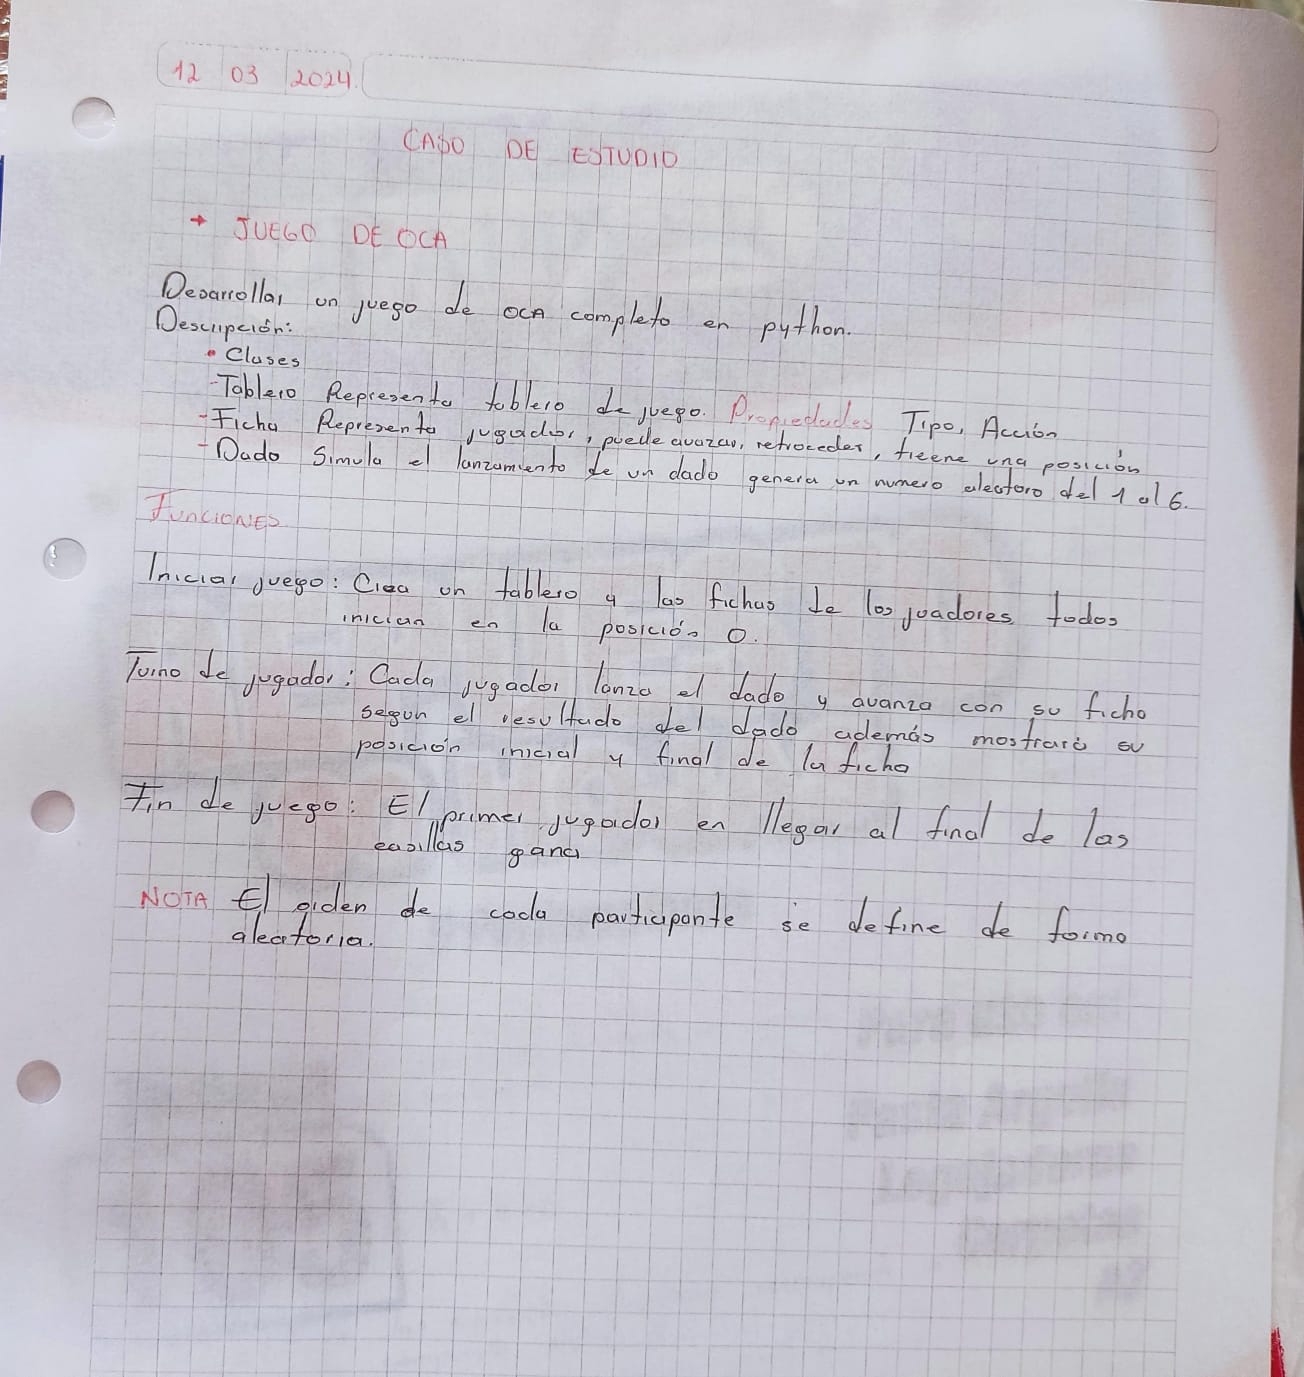 12 03 2024.
CASO DE ESTUDIO
→ JUEGO DE OCA
Desarrollar un juego de OCA completo en python.
Descripción:
• Clases
- Tablero Representa tablero de juego. Propiedades Tipo, Acción
- Ficha Representa jugador, puede avazar, retroceder, tieene una posición
- Dado Simula el lanzamiento de un dado genera un numero aleatoro del 1 al 6.
Funciones
Inicial juego: Crea un tablero y las fichas de los juadores todos
inician en la posición 0.
Turno de jugador: Cada jugador lanza el dado y avanza con su ficha
segun el resultado del dado además mostrará su
posición inicial y final de la ficha
Fin de juego: El primer jugador en llegar al final de las
casillas gana
NOTA El orden de cada participante se define de forma
aleatoria.